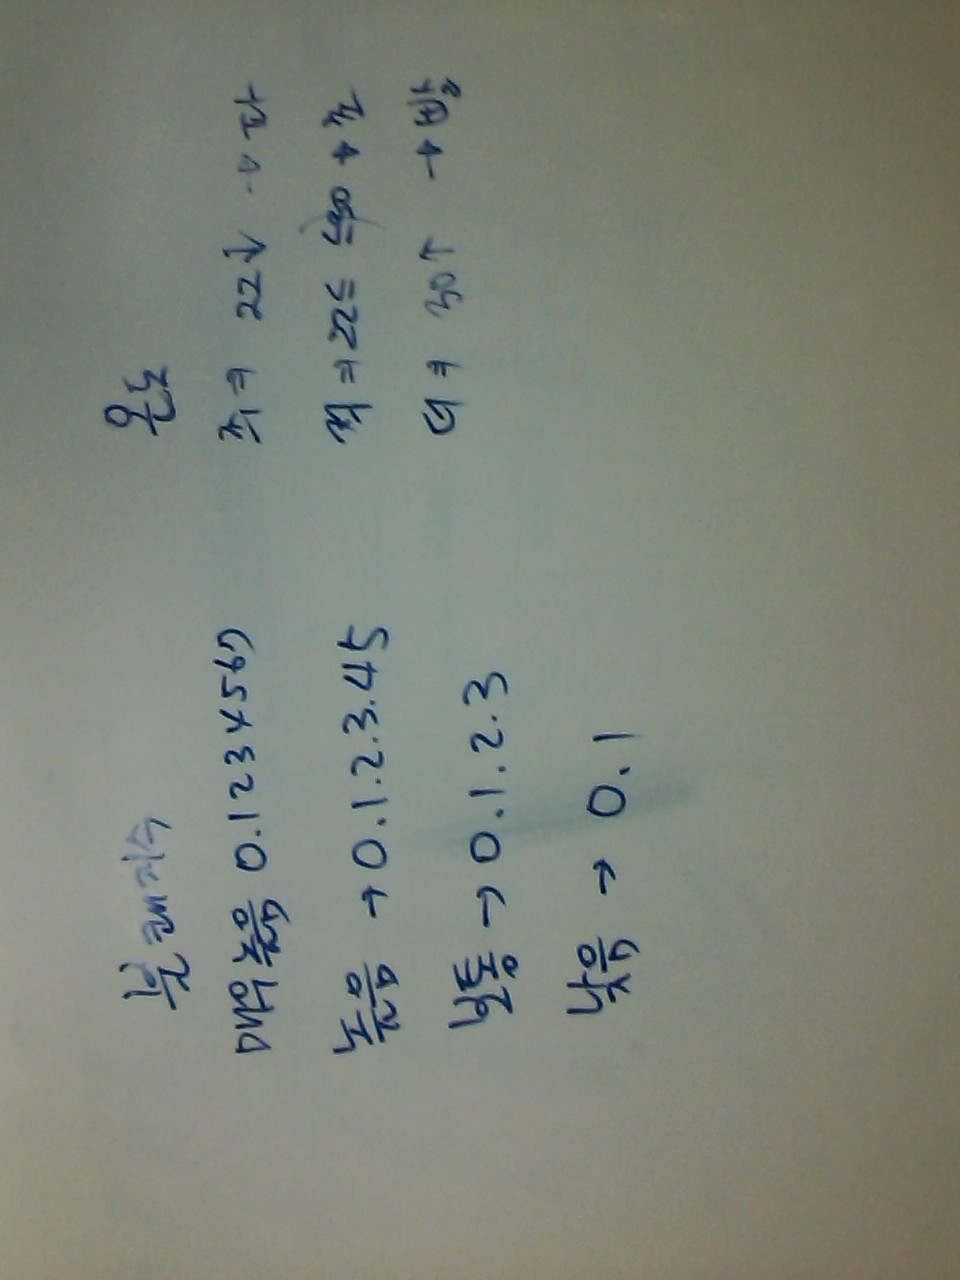 불쾌지수
매우높음 0.1234567
높음 → 0.1.2.3.45
보통 → 0.1.2.3
낮음 → 0.1
온도
최 ⇒ 22↓ → 파
적 ⇒ 22≤ ≤30 → 초
더 ⇒ 30↑ → 빨